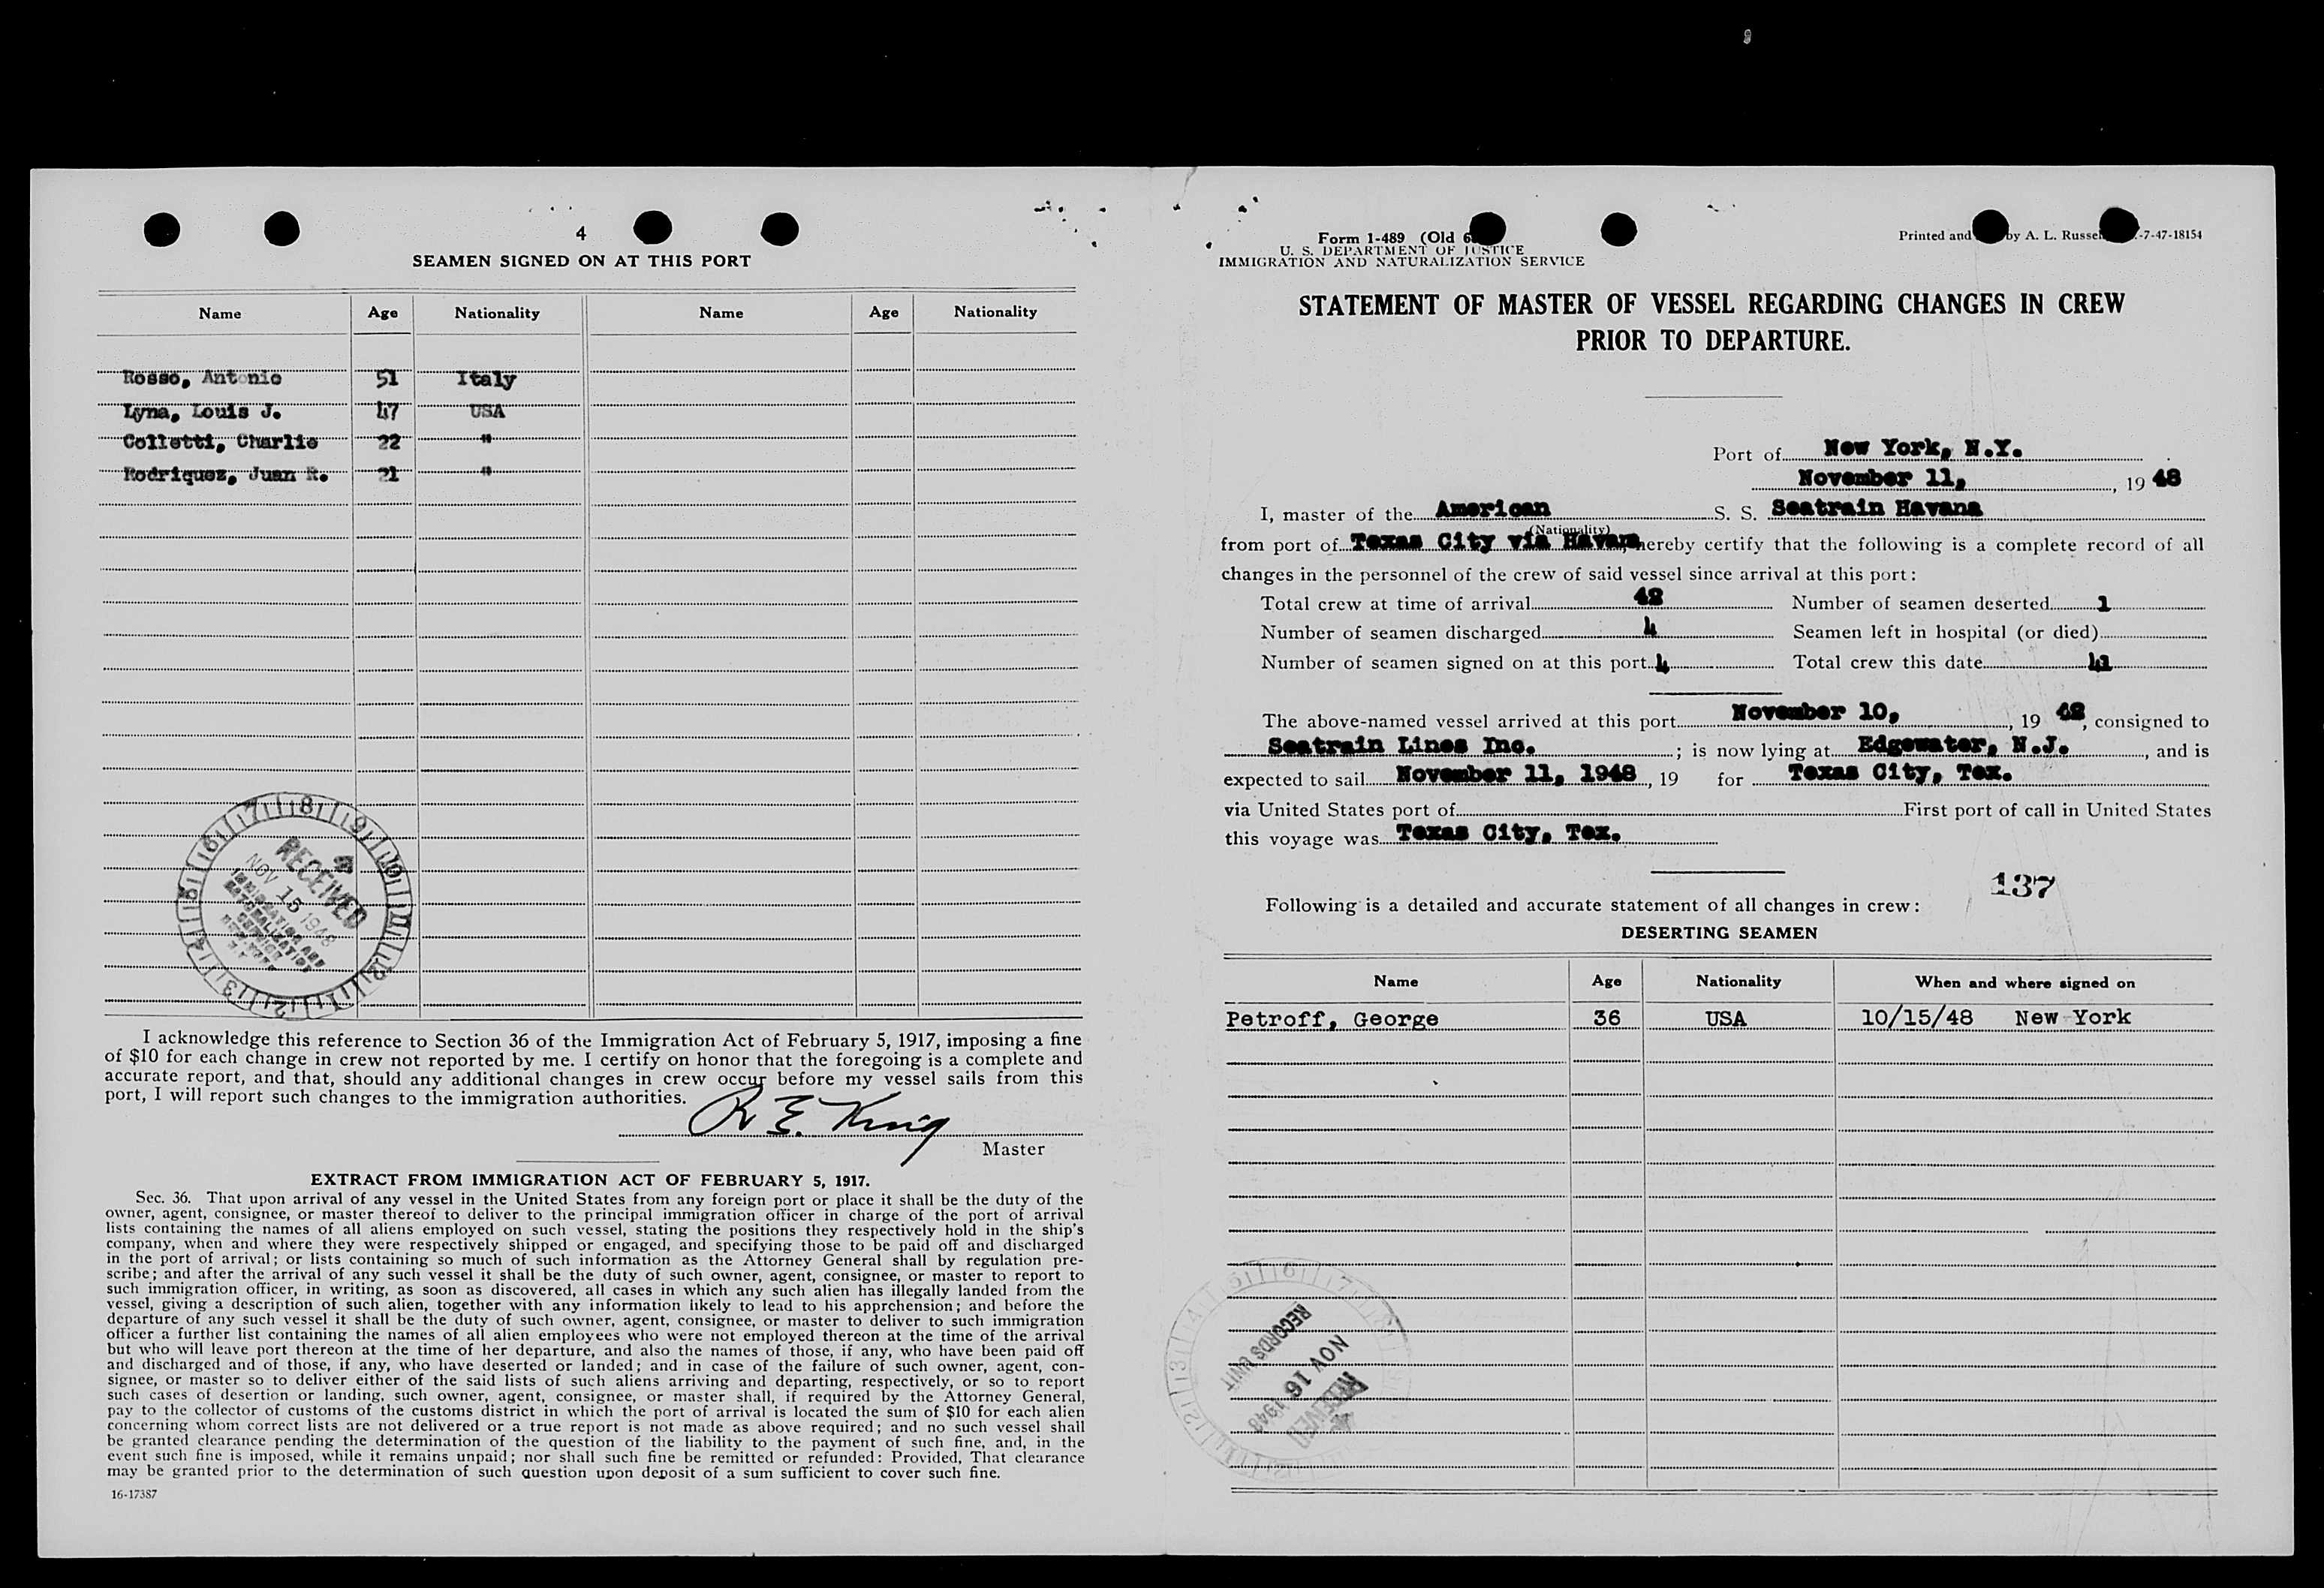 4
SEAMEN SIGNED ON AT THIS PORT
Name Age Nationality Name Age Nationality
Rosso, Antonio 51 Italy
Lyna, Louis J. 47 USA
Colletti, Charlie 22 "
Rodriquez, Juan R. 21 "
RECEIVED
NOV 15 1948
IMMIGRATION AND
NATURALIZATION
SERVICE
I acknowledge this reference to Section 36 of the Immigration Act of February 5, 1917, imposing a fine
of $10 for each change in crew not reported by me. I certify on honor that the foregoing is a complete and
accurate report, and that, should any additional changes in crew occur before my vessel sails from this
port, I will report such changes to the immigration authorities.
R E. King
Master
EXTRACT FROM IMMIGRATION ACT OF FEBRUARY 5, 1917.
Sec. 36. That upon arrival of any vessel in the United States from any foreign port or place it shall be the duty of the
owner, agent, consignee, or master thereof to deliver to the principal immigration officer in charge of the port of arrival
lists containing the names of all aliens employed on such vessel, stating the positions they respectively hold in the ship's
company, when and where they were respectively shipped or engaged, and specifying those to be paid off and discharged
in the port of arrival; or lists containing so much of such information as the Attorney General shall by regulation pre-
scribe; and after the arrival of any such vessel it shall be the duty of such owner, agent, consignee, or master to report to
such immigration officer, in writing, as soon as discovered, all cases in which any such alien has illegally landed from the
vessel, giving a description of such alien, together with any information likely to lead to his apprehension; and before the
departure of any such vessel it shall be the duty of such owner, agent, consignee, or master to deliver to such immigration
officer a further list containing the names of all alien employees who were not employed thereon at the time of the arrival
but who will leave port thereon at the time of her departure, and also the names of those, if any, who have been paid off
and discharged and of those, if any, who have deserted or landed; and in case of the failure of such owner, agent, con-
signee, or master so to deliver either of the said lists of such aliens arriving and departing, respectively, or so to report
such cases of desertion or landing, such owner, agent, consignee, or master shall, if required by the Attorney General,
pay to the collector of customs of the customs district in which the port of arrival is located the sum of $10 for each alien
concerning whom correct lists are not delivered or a true report is not made as above required; and no such vessel shall
be granted clearance pending the determination of the question of the liability to the payment of such fine, and, in the
event such fine is imposed, while it remains unpaid; nor shall such fine be remitted or refunded: Provided, That clearance
may be granted prior to the determination of such question upon deposit of a sum sufficient to cover such fine.
16-17387
Form 1-489 (Old 6
U. S. DEPARTMENT OF JUSTICE
IMMIGRATION AND NATURALIZATION SERVICE
Printed and by A. L. Russel -7-47-18154
STATEMENT OF MASTER OF VESSEL REGARDING CHANGES IN CREW
PRIOR TO DEPARTURE.
Port of New York, N.Y.
November 11, , 19 48
I, master of the American S. S. Seatrain Havana
(Nationality)
from port of Texas City via Havana, hereby certify that the following is a complete record of all
changes in the personnel of the crew of said vessel since arrival at this port:
Total crew at time of arrival 42 Number of seamen deserted 1
Number of seamen discharged 4 Seamen left in hospital (or died)
Number of seamen signed on at this port 4 Total crew this date 41
The above-named vessel arrived at this port November 10, , 19 48, consigned to
Seatrain Lines Inc. ; is now lying at Edgewater, N.J. , and is
expected to sail November 11, 1948 , 19 for Texas City, Tex.
via United States port of First port of call in United States
this voyage was Texas City, Tex.
137
Following is a detailed and accurate statement of all changes in crew:
DESERTING SEAMEN
Name Age Nationality When and where signed on
Petroff, George 36 USA 10/15/48 New York
RECORDS UNIT
NOV 16 1948
RECEIVED